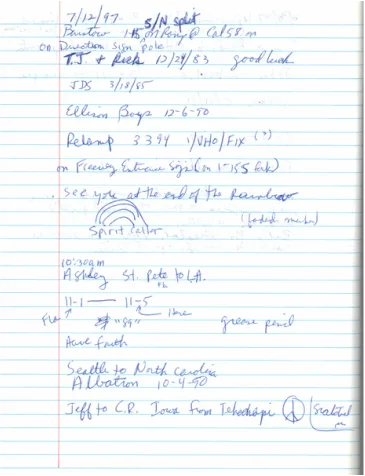 7/12/97 S/N split
Barstow I-15 on Ramp @ Cal 58 m
on Direction Sign pole
T.J. & Rick 12/29/83 good luck
JDS 3/18/85
Ellison Boys 12-6-90
3394 1/VHO/FIX (?)
on Freeway Entrance Sign (on I-15S
see you at the end of the Rainbow
(faded marker)
Spirit Caller
10:30am
Ashley St. Pete to L.A.
11-1 — 11-5
"89" Here
grease pencil
Have faith
Seattle to North Carolina
10-4-90
Jeff to C.R. Iowa from Tehachapi